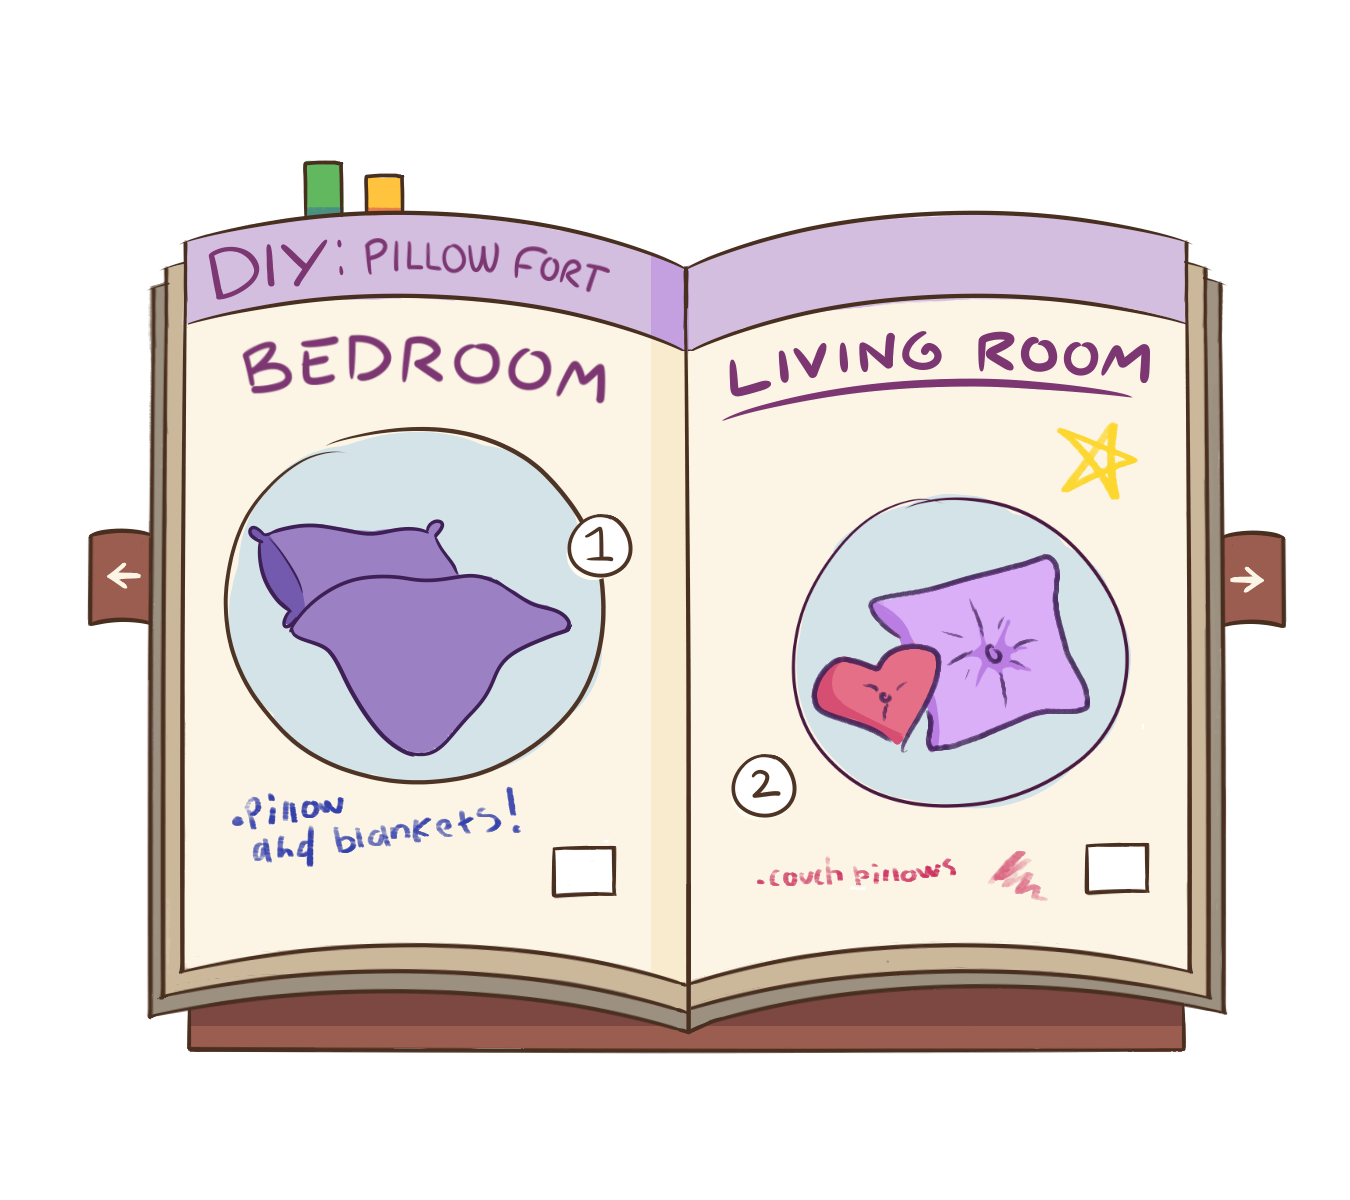 DIY: PILLOW FORT
BEDROOM
1
•Pillow
and blankets!
LIVING ROOM
2
•couch pillows